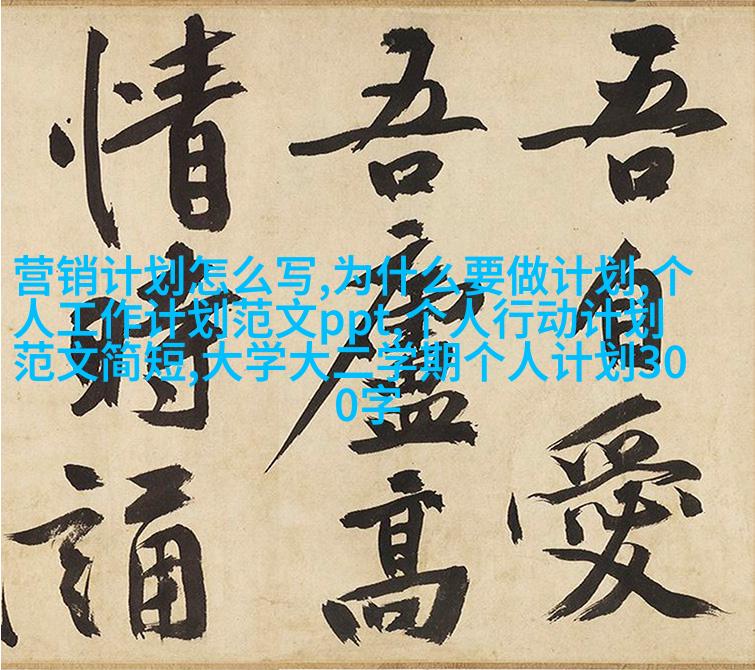 吾自愛
吾廬高
情時誦
营销计划怎么写,为什么要做计划,个
人工作计划范文ppt,个人行动计划
范文简短,大学大二学期个人计划30
0字